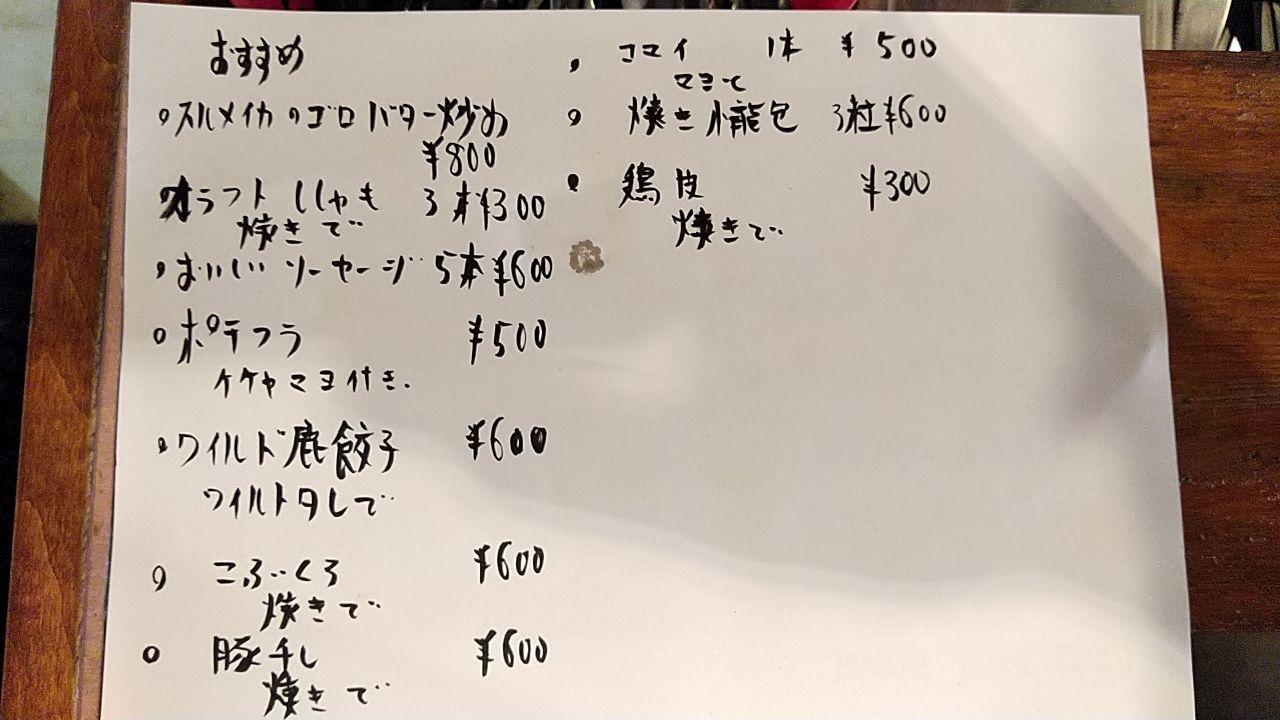 おすすめ
スルメイカのゴロバター炒め
¥800
オラフト ししゃも 3本¥300
焼きで
おいしいソーセージ 5本¥600
ポテフラ ¥500
ケケヤマヨ付き.
ワイルド鹿餃子 ¥600
ワイルドタレで
こぶくろ ¥600
焼きで
豚干し ¥600
焼きで
コマイ 1本 ¥500
マヨで
焼き小龍包 3粒¥600
鶏皮 ¥300
焼きで